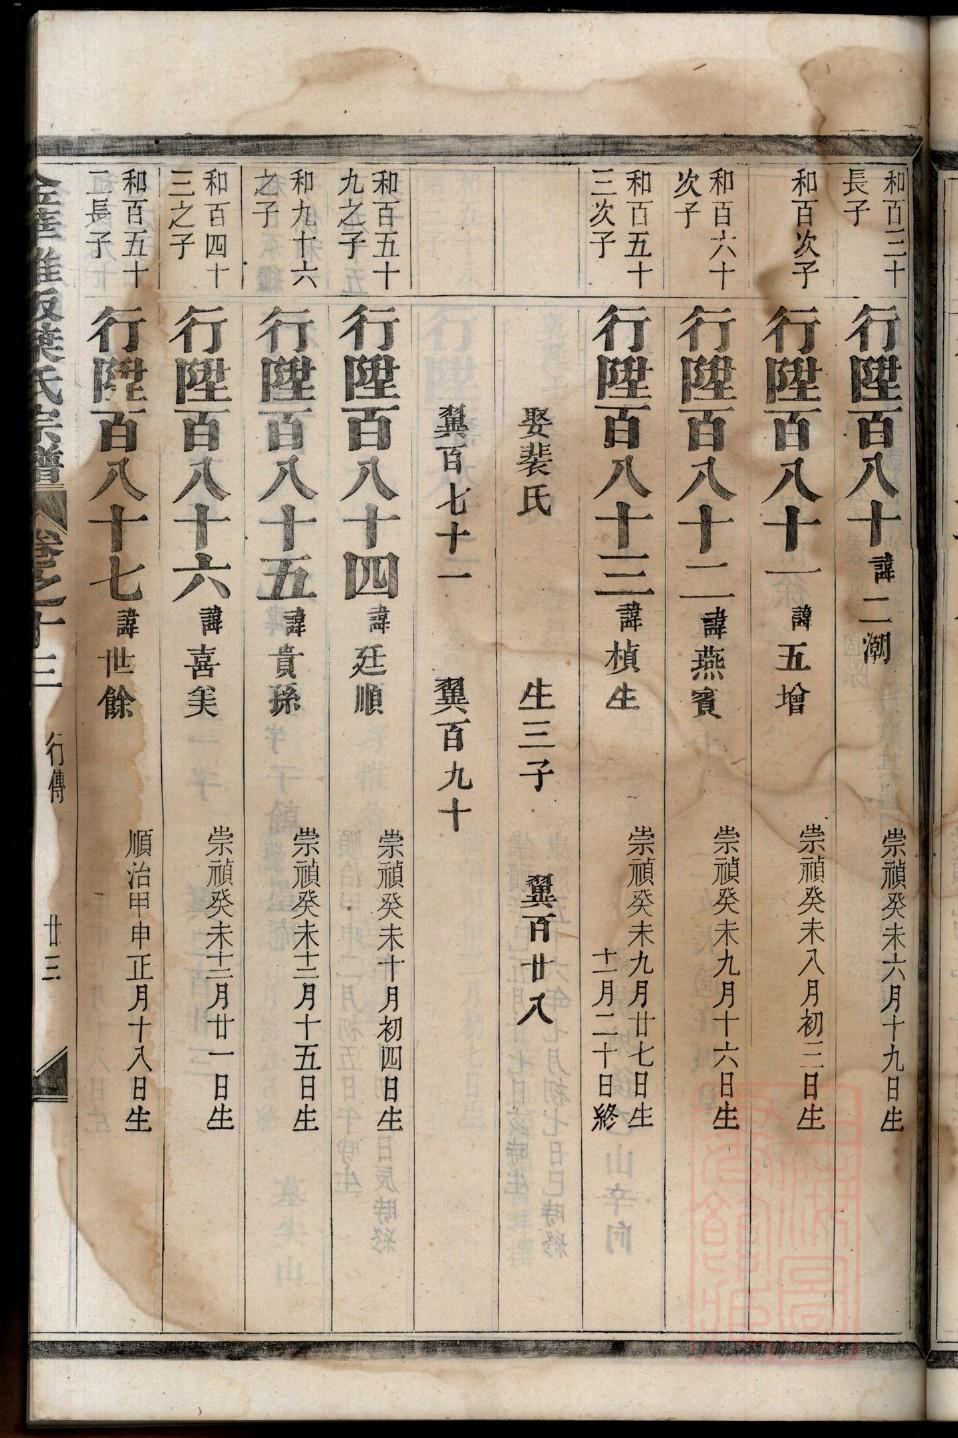 和百三十
長子
行陞百八十 諱二潮
崇禎癸未六月十九日生
和百次子
行陞百八十一 諱五增
崇禎癸未八月初三日生
和百六十
次子
行陞百八十二 諱燕賓
崇禎癸未九月十六日生
和百五十
三次子
行陞百八十三 諱楨生
崇禎癸未九月廿七日生
十一月二十日終
娶裴氏 生三子 翼百廿八
翼百七十一 翼百九十
和百五十
九之子
行陞百八十四 諱廷順
崇禎癸未十月初四日生
和九十六
之子
行陞百八十五 諱貴孫
崇禎癸未十二月十五日生
和百四十
三之子
行陞百八十六 諱喜美
崇禎癸未十二月廿一日生
和百五十
二長子
行陞百八十七 諱世餘
順治甲申正月十八日生
葉氏宗譜 卷之十三 行傳 廿三